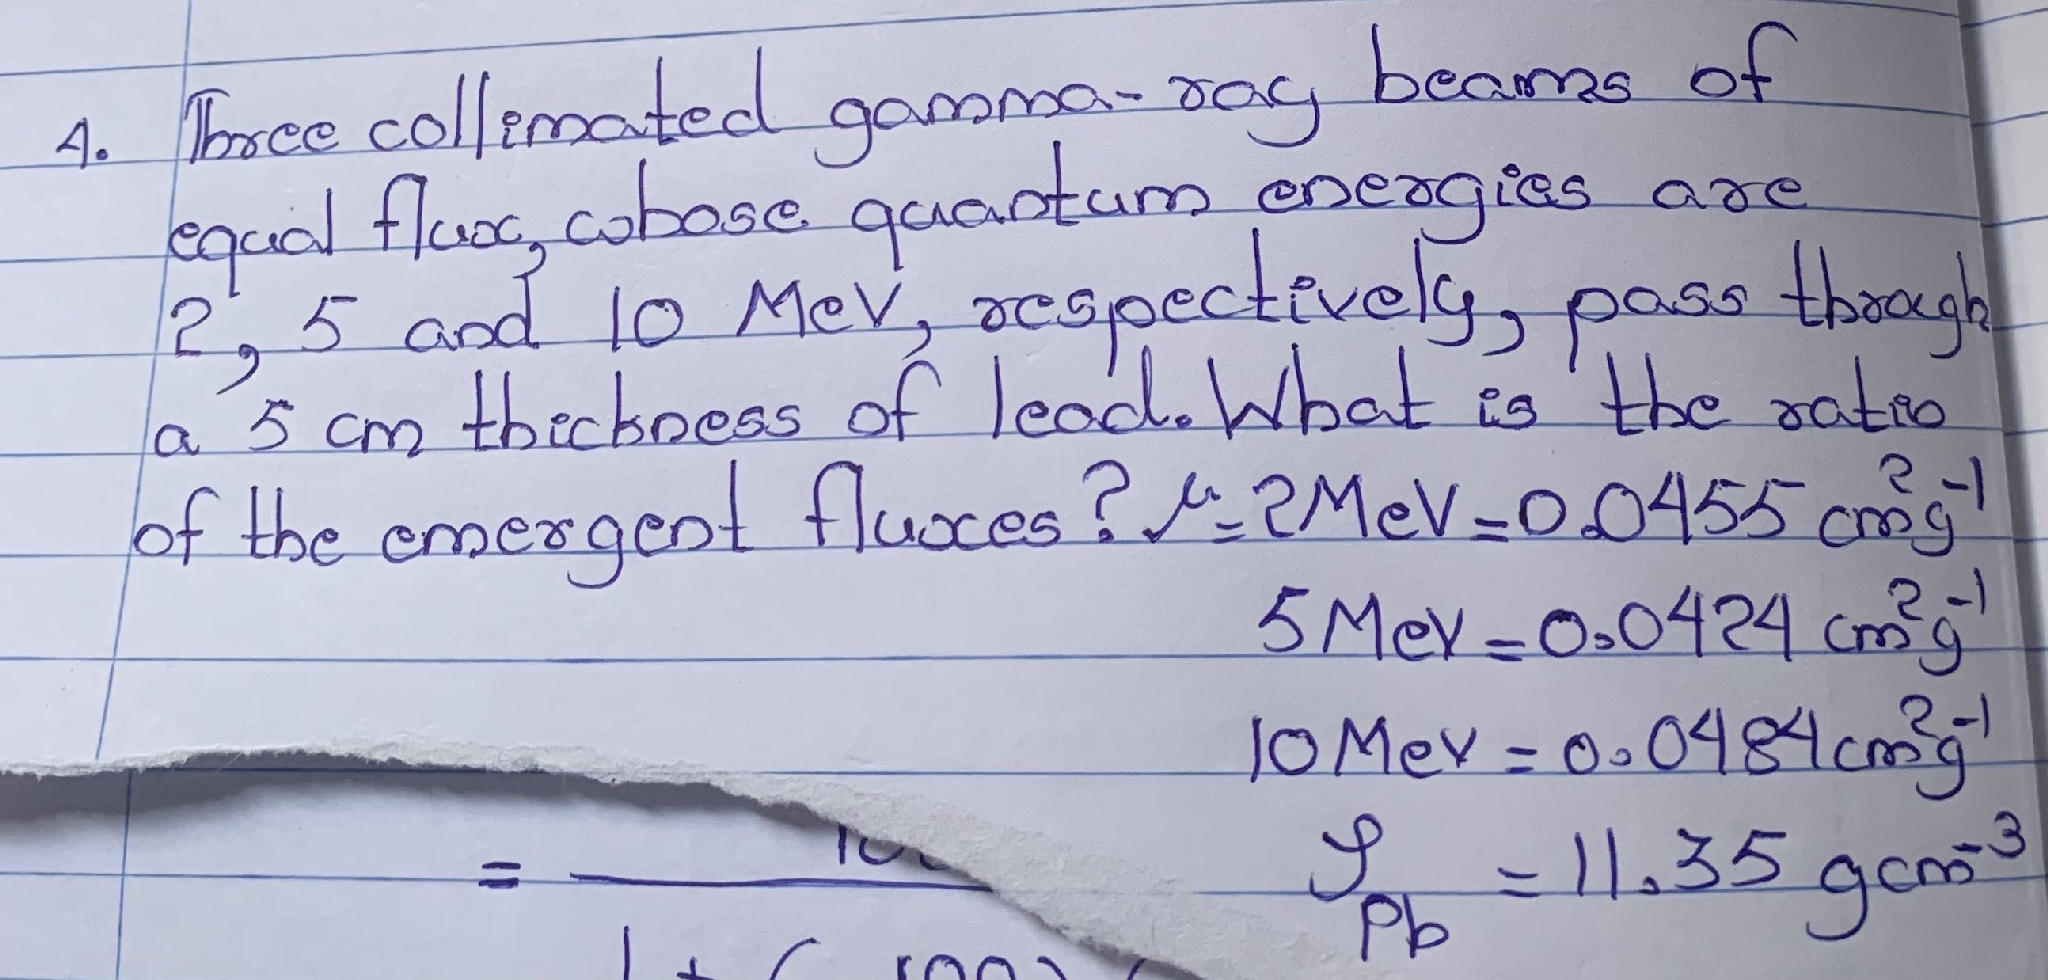 4. Three collimated gamma-ray beams of
equal flux, whose quantum energies are
2, 5 and 10 MeV, respectively, pass through
a 5 cm thickness of lead. What is the ratio
of the emergent fluxes? μ = 2MeV = 0.0455 cm²g⁻¹
5 MeV = 0.0424 cm²g⁻¹
10 MeV = 0.0484 cm²g⁻¹
=
ρ_Pb = 11.35 g cm⁻³
1 + (